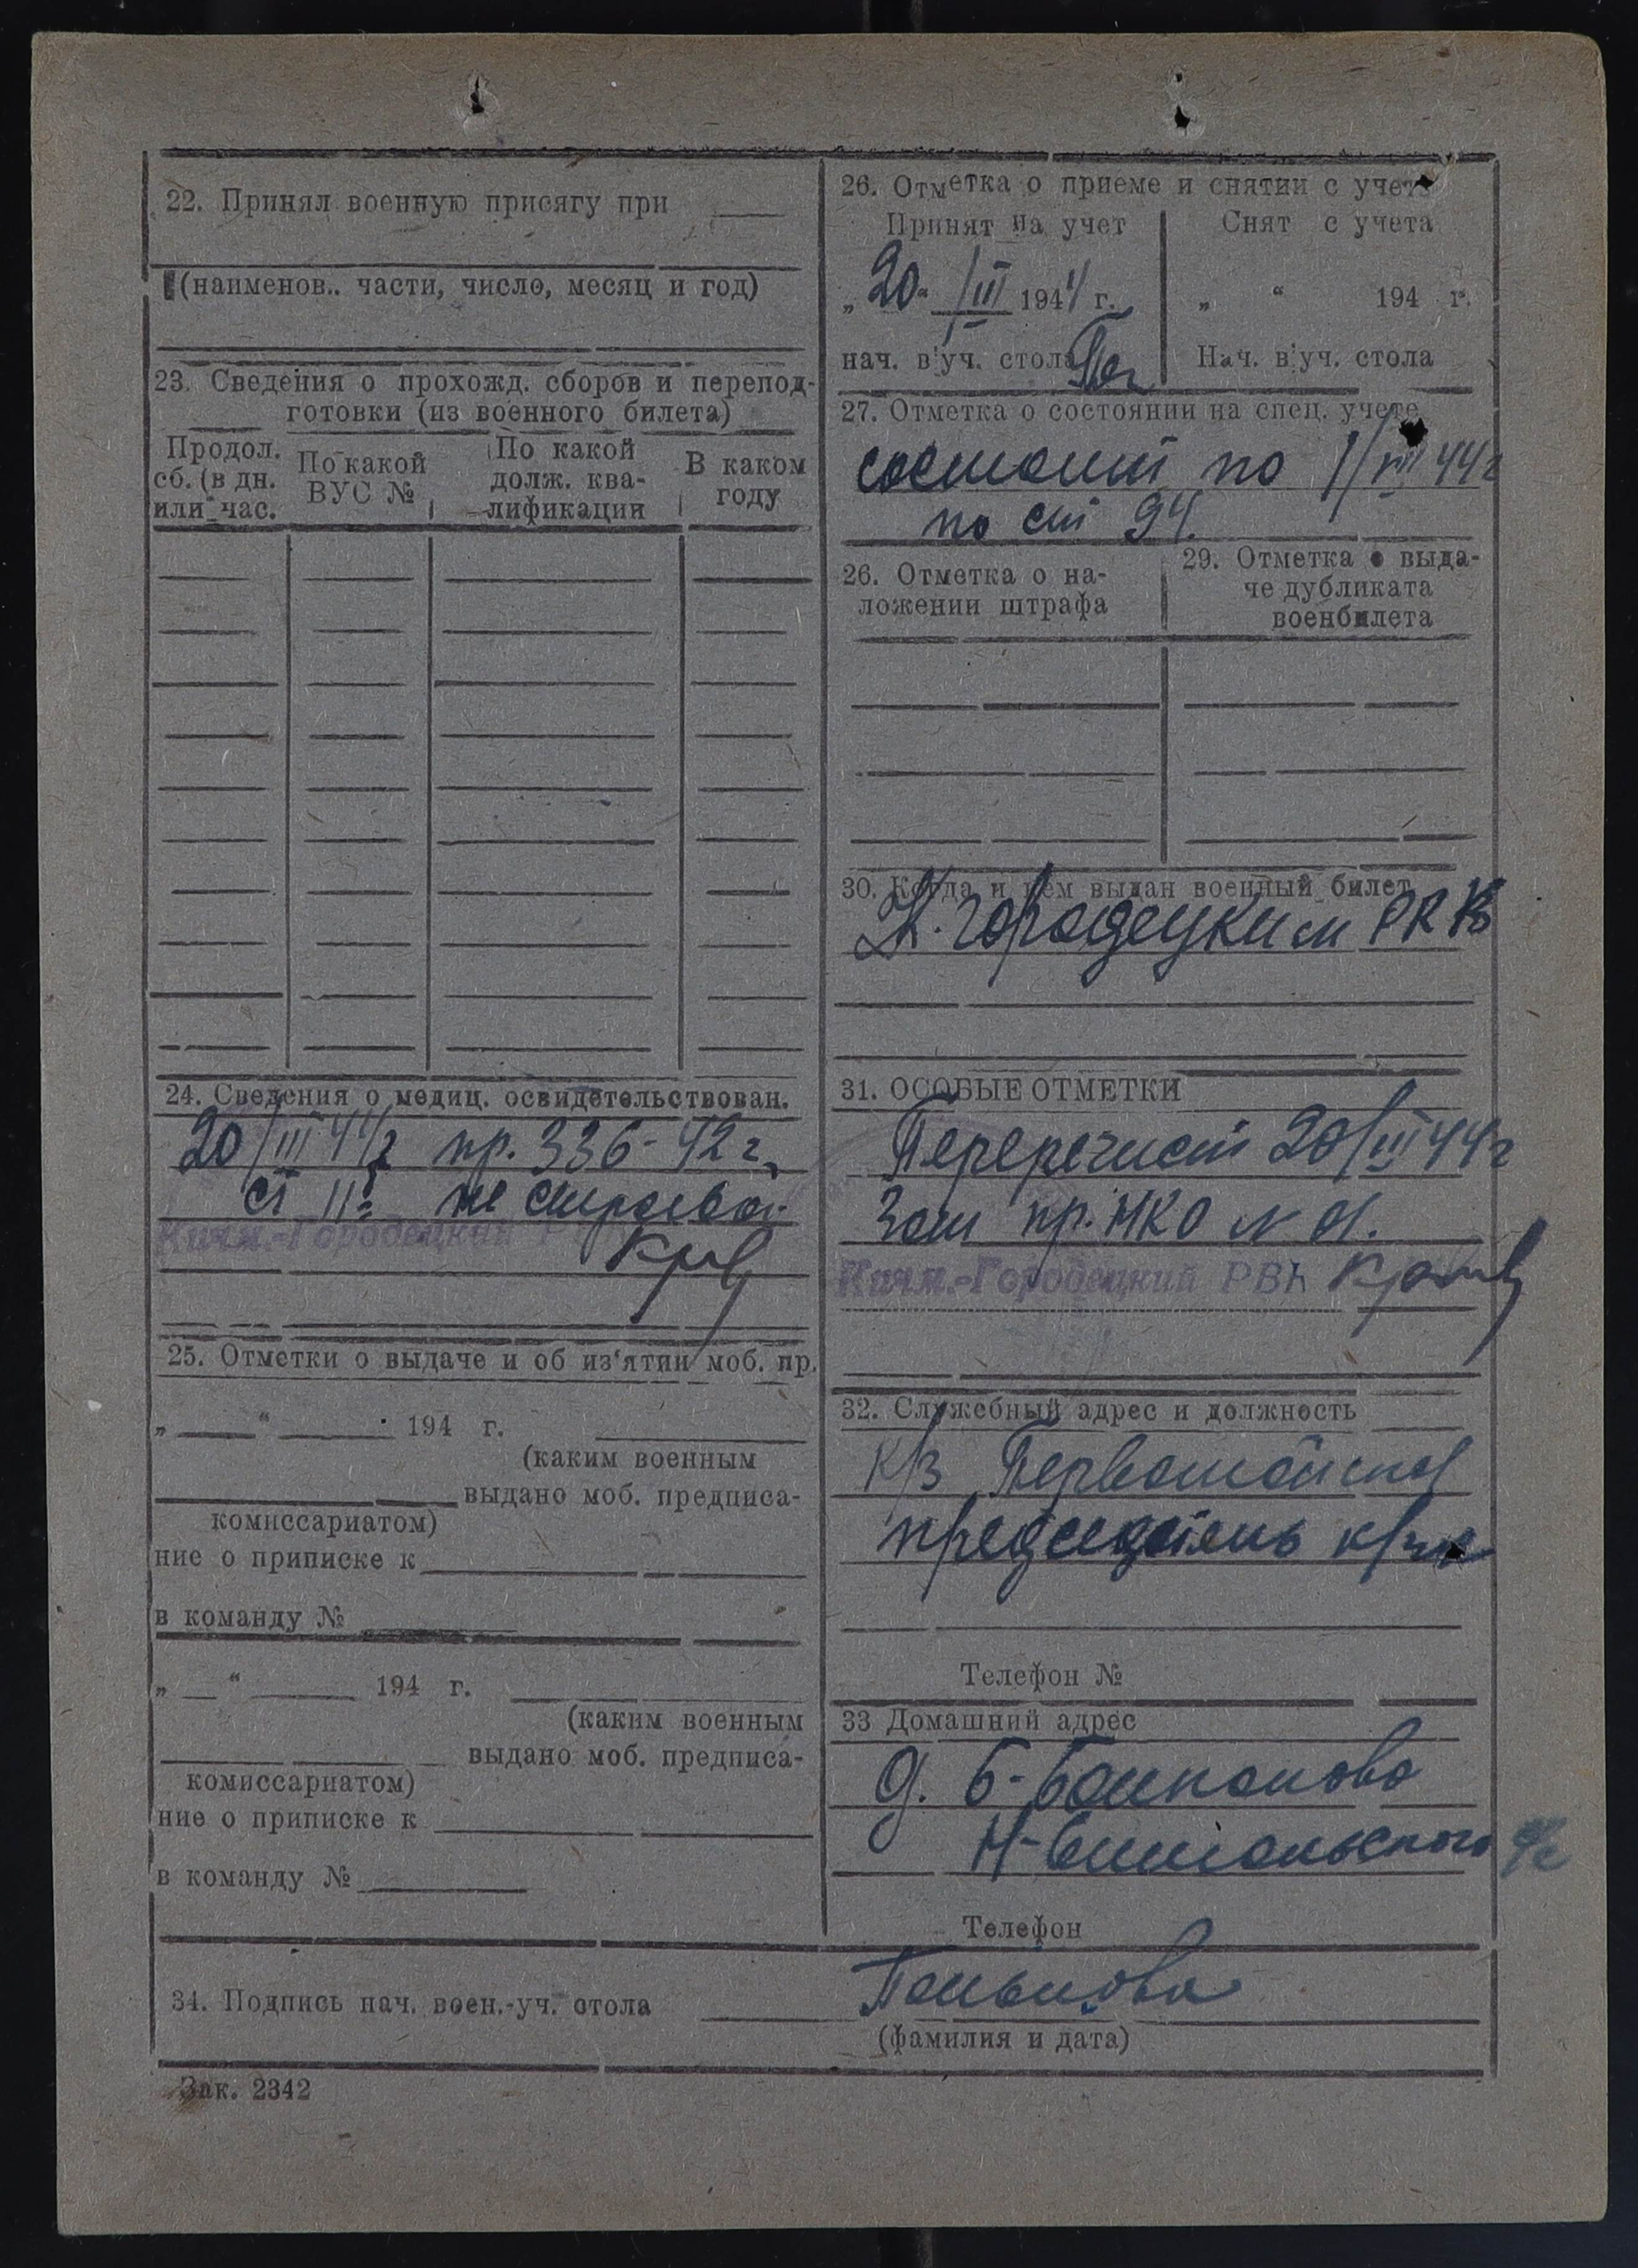 22. Принял военную присягу при
(наименов.. части, число, месяц и год)
23. Сведения о прохожд. сборов и перепод-
готовки (из военного билета)
Продол.
сб. (в дн.
или час.
По какой
ВУС №
По какой
долж. ква-
лификации
В каком
году
24. Сведения о медиц. освидетельствован.
20/III 44 г пр. 336-42 г.
ст II б не строевой
Кичм.-Городецкий
25. Отметки о выдаче и об из'ятии моб. пр.
„ “ 194 г.
(каким военным
выдано моб. предписа-
комиссариатом)
ние о приписке к
в команду №
„ “ 194 г.
(каким военным
выдано моб. предписа-
комиссариатом)
ние о приписке к
в команду №
26. Отметка о приеме и снятии с учета
Принят на учет
„20“ III 1944 г.
нач. в уч. стола
Снят с учета
„ “ 194 г.
Нач. в уч. стола
27. Отметка о состоянии на спец. учете
состоит по 44 г
по ст 94.
26. Отметка о на-
ложении штрафа
29. Отметка о выда-
че дубликата
военбилета
30. Когда и кем выдан военный билет
К. городецким РВК
31. ОСОБЫЕ ОТМЕТКИ
20/III 44 г
пр. НКО №
Кичм.-Городецкий РВК
32. Служебный адрес и должность
к/з Первомайский
председатель
Телефон №
33 Домашний адрес
д. Б-
Н-
Телефон
34. Подпись нач. воен.-уч. стола
(фамилия и дата)
Зак. 2342